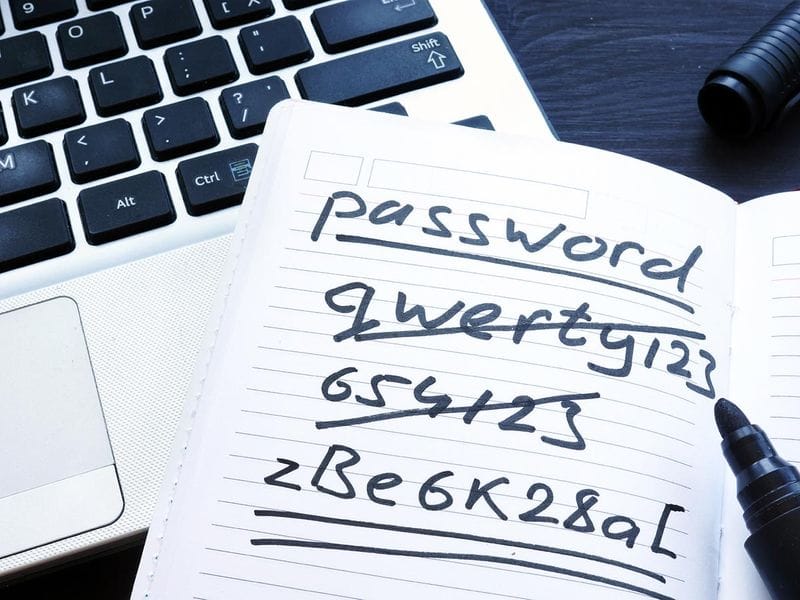 9 O P
O P
K L : ;
" '
Shift
M < , > . ? / Ctrl
Alt
password
qwerty123
654123
zBe6K28a[